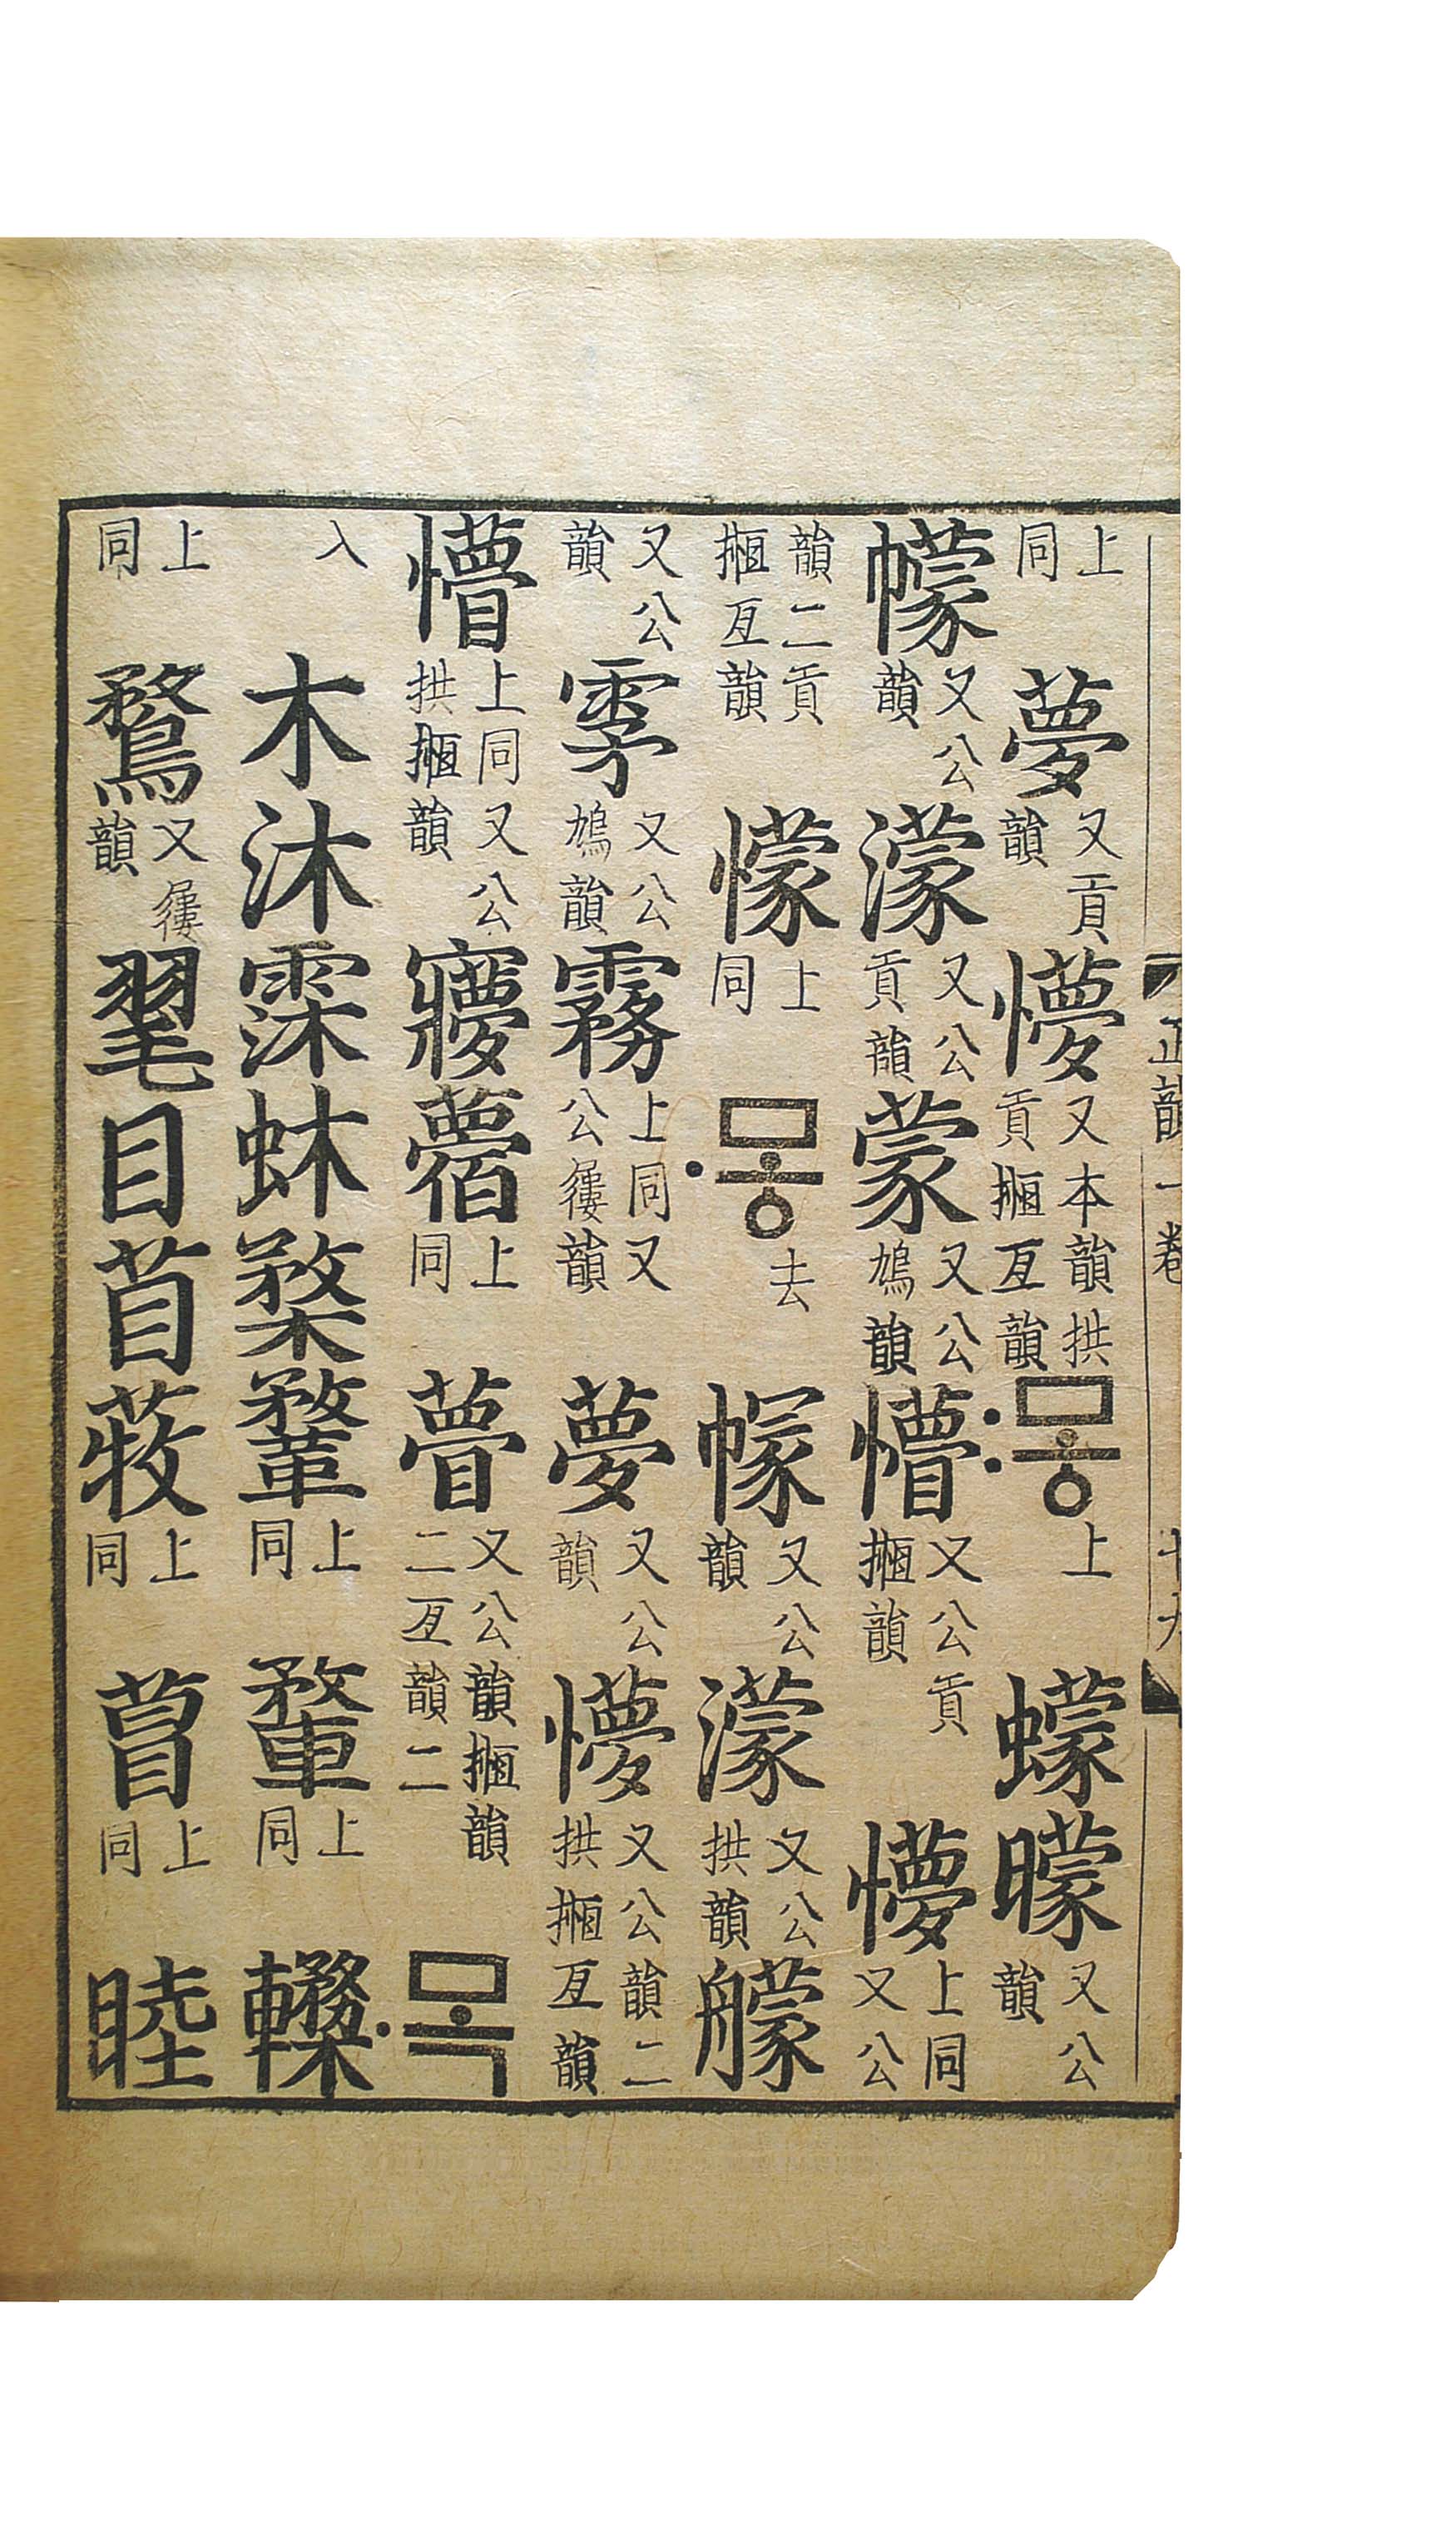 上同夢又貢韻懜又本韻拱貢揯亙韻:뫃上蠓曚又公韻
幪又公韻濛又公貢韻蒙又公鳩韻懵又公貢揯韻懜上同又公
韻二貢揯亙韻懞上同·뫃去幏又公韻濛又公拱韻艨
又公韻雺又公鳩韻霧上同又公屨韻夢又公韻懜又公韻二拱揯亙韻
懵上同又公拱揯韻㝱上同瞢又公韻揯韻二亙韻二·목
入木沐霂蚞楘鞪上同上同
上同鶩又屨韻毣目苜上同萺上同睦
正韻一卷